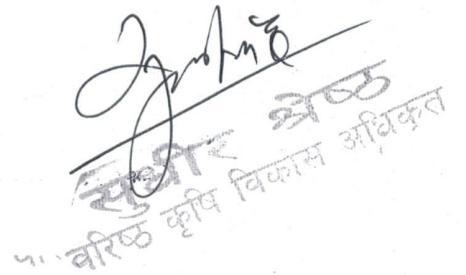 सुधीर श्रेष्ठ
वरिष्ठ कृषि विकास अधिकृत